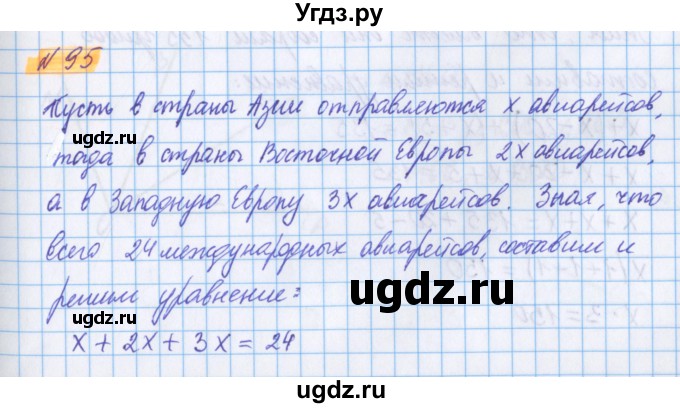 Угдз.ру
N 95
Пусть в страны Азии отправляются x авиарейсов,
угдz.ru
тогда в страны Восточной Европы 2x авиарейсов,
ugdz.ru
а в Западную Европу 3x авиарейсов. Зная, что
всего 24 международных авиарейсов, составим и
решим уравнение:
ugdz.ru
ugdz.ru
x + 2x + 3x = 24
ugdz.ru